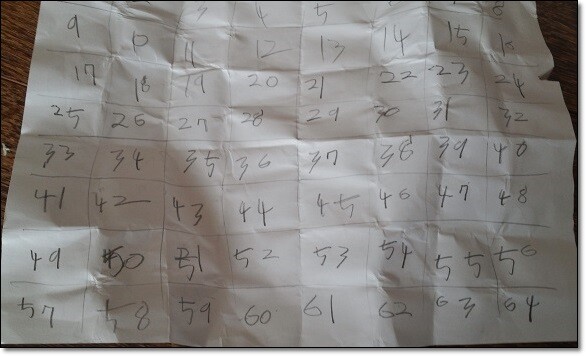 3 4 5 8
9 10 11 12 13 14 15 16
17 18 19 20 21 22 23 24
25 26 27 28 29 30 31 32
33 34 35 36 37 38 39 40
41 42 43 44 45 46 47 48
49 50 51 52 53 54 55 56
57 58 59 60 61 62 63 64